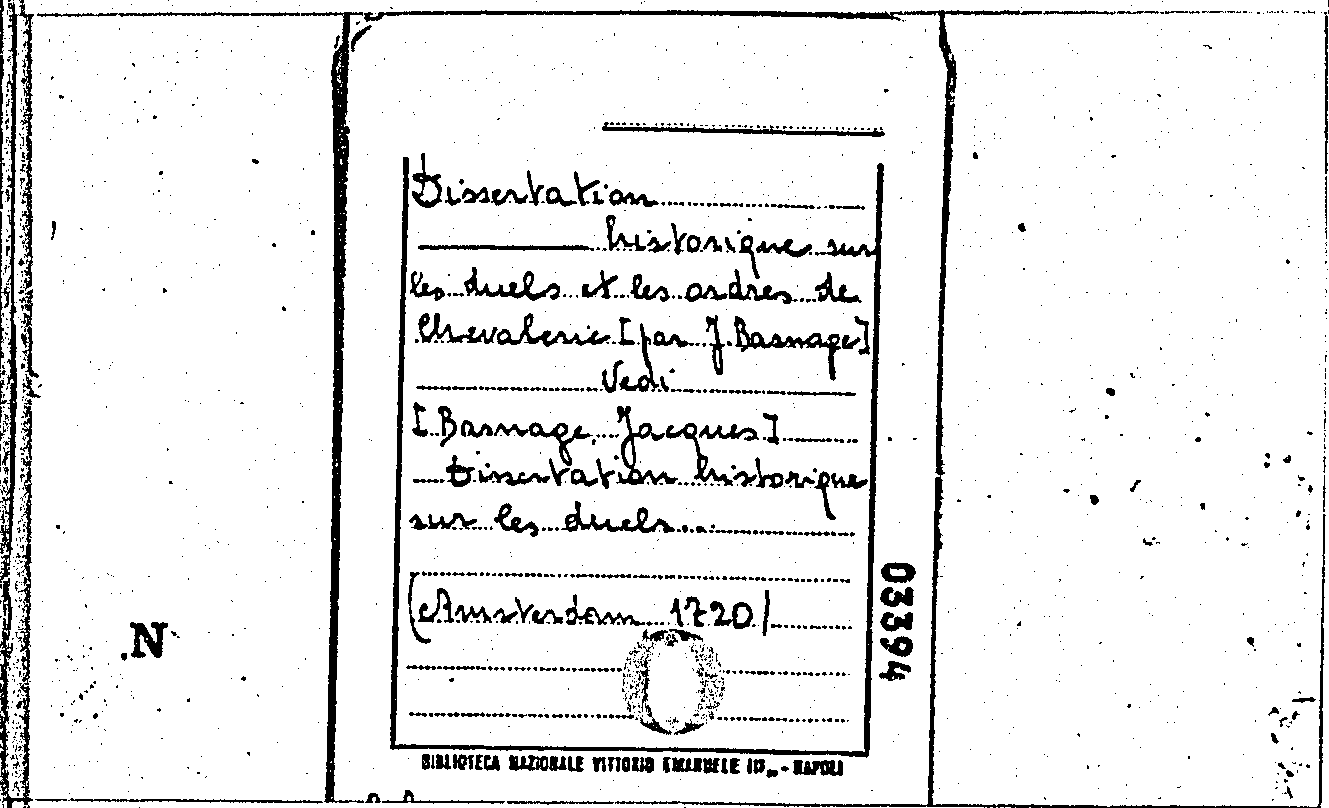 Dissertation
historique sur
les duels et les ordres de
Chevalerie [par J. Basnage]
Vedi
[Basnage, Jacques]
Dissertation historique
sur les duels...
(Amsterdam 1720)
03394
N
BIBLIOTECA NAZIONALE VITTORIO EMANUELE III - NAPOLI